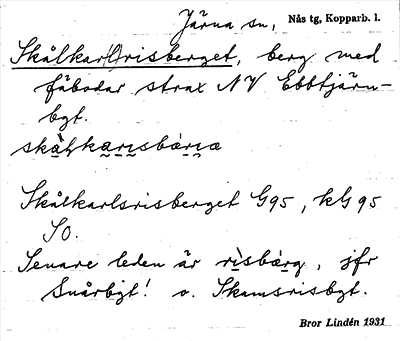 Järna sn, Nås tg, Kopparb. l.
Skålkar(l)risberget, berg med
fäbodar strax NV Ebbtjärn-
bgt.
Skålkarlsrisberget G95, kG 95
SO.
Senare leden är risbærg, jfr
Snårbgt! o. Skamsrisbgt.
Bror Lindén 1931